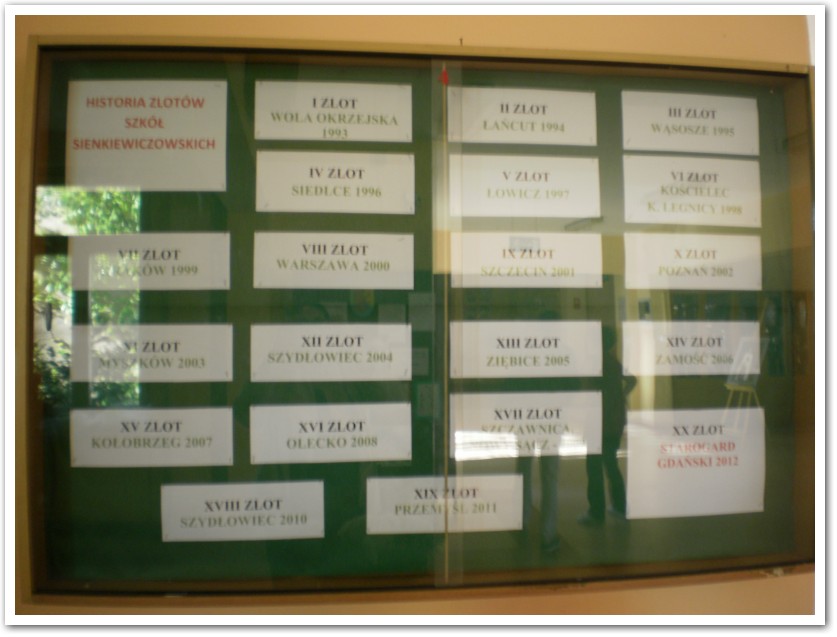 HISTORIA ZLOTÓW
SZKÓŁ
SIENKIEWICZOWSKICH
I ZLOT
WOLA OKRZEJSKA
1993
II ZLOT
ŁAŃCUT 1994
III ZLOT
WĄSOSZE 1995
IV ZLOT
SIEDLCE 1996
V ZLOT
ŁOWICZ 1997
VI ZLOT
KOŚCIELEC
K. LEGNICY 1998
VII ZLOT
1999
VIII ZLOT
WARSZAWA 2000
IX ZLOT
SZCZECIN 2001
X ZLOT
POZNAŃ 2002
XI ZLOT
MYSZKÓW 2003
XII ZLOT
SZYDŁOWIEC 2004
XIII ZLOT
ZIĘBICE 2005
XIV ZLOT
ZAMOŚĆ 2006
XV ZLOT
KOŁOBRZEG 2007
XVI ZLOT
OLECKO 2008
XVII ZLOT
SZCZAWNICA
XX ZLOT
STAROGARD
GDAŃSKI 2012
XVIII ZLOT
SZYDŁOWIEC 2010
XIX ZLOT
PRZEMYŚL 2011